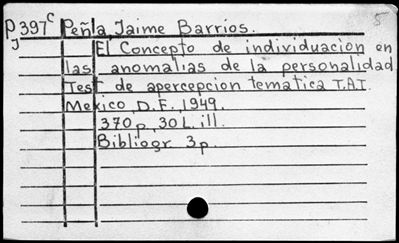 P 397 c Peñla, Jaime Barrios.
J
El Concepto de individuación en
las anomalías de la personalidad
Test de apercepcion tematica T.A.T.
Mexico, D.F., 1949.
370 p., 30 L. ill.
Bibliogr. 3 p.